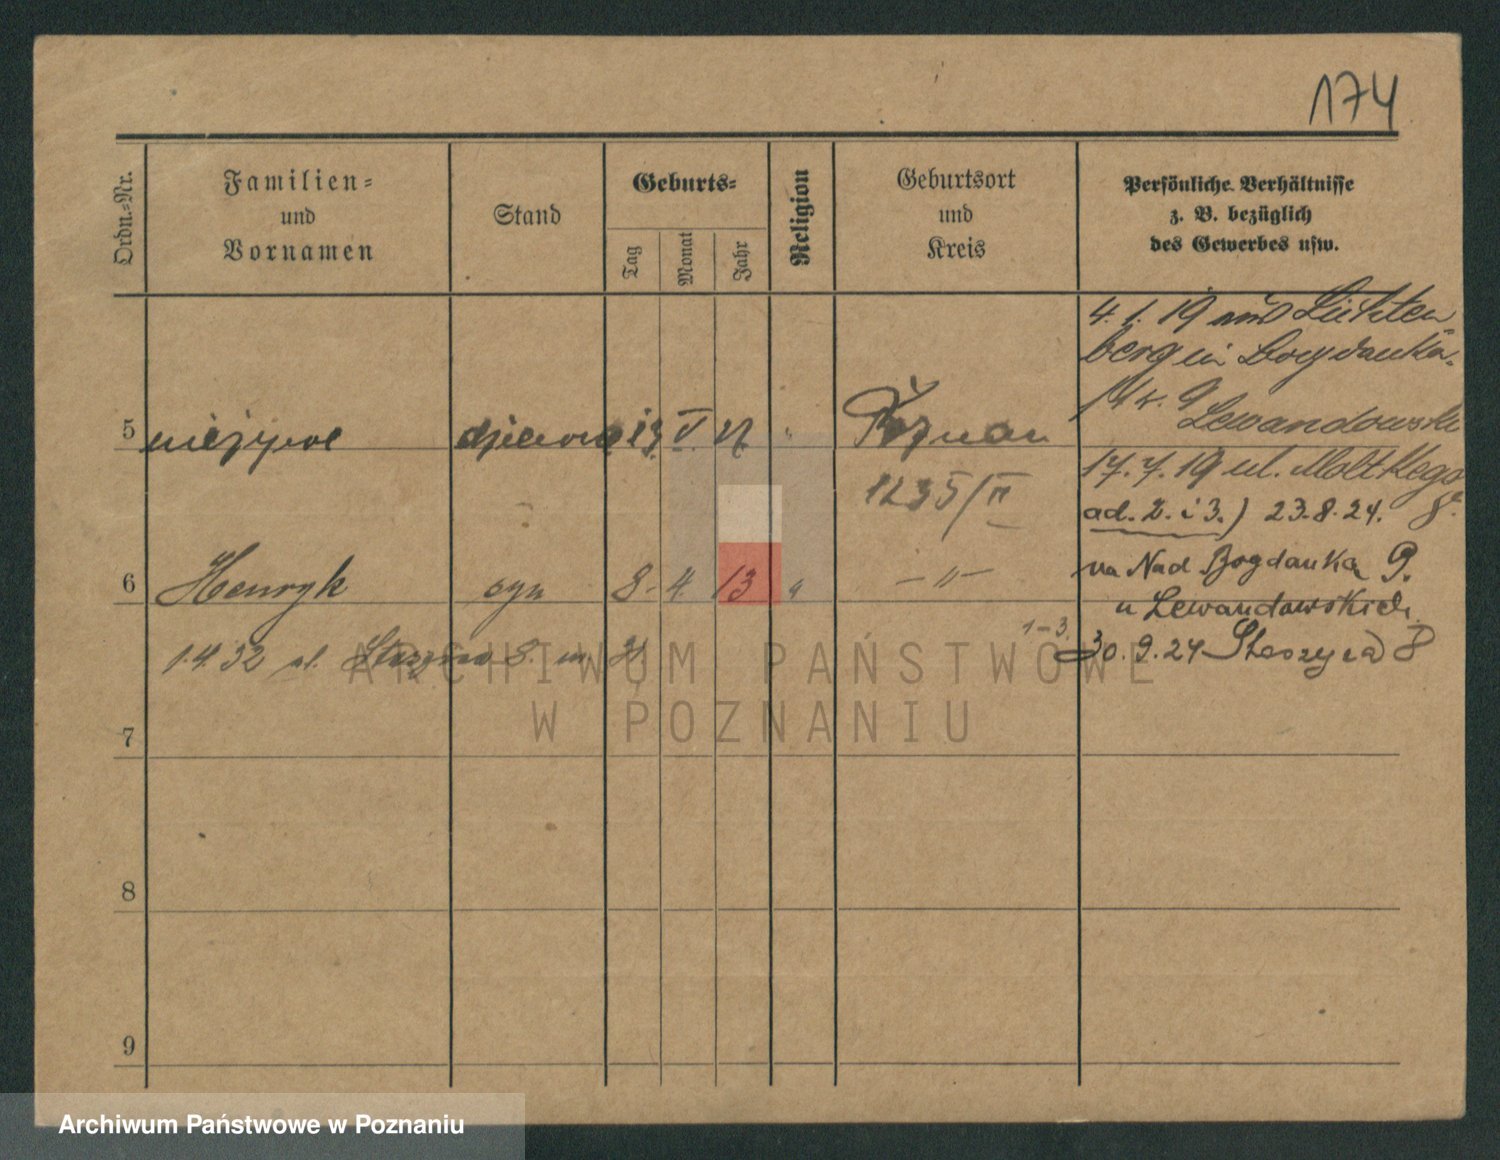 174
Ordn.-Nr.
Familien-
und
Vornamen
Stand
Geburts-
Tag
Monat
Jahr
Religion
Geburtsort
und
Kreis
Persönliche Verhältnisse
z. B. bezüglich
des Gewerbes usw.
4. 1. 19 aus Lichten
berg in Bogdanka
9
Lewandowski
5 nieżywe 13 V 27 Poznan
17. 7. 19 ul. Moltkego 8
1235/II
ad. 2. i 3.) 23.8.24.
6 Henryk syn 8 4 13 " — " —
na Nad Bogdanka 9.
u Lewandowskich
1-3.
30. 9. 24 Staszyca 8
1.4.32 ul. Staszyca 8. m
7
8
9
ARCHIWUM PAŃSTWOWE
W POZNANIU
Archiwum Państwowe w Poznaniu